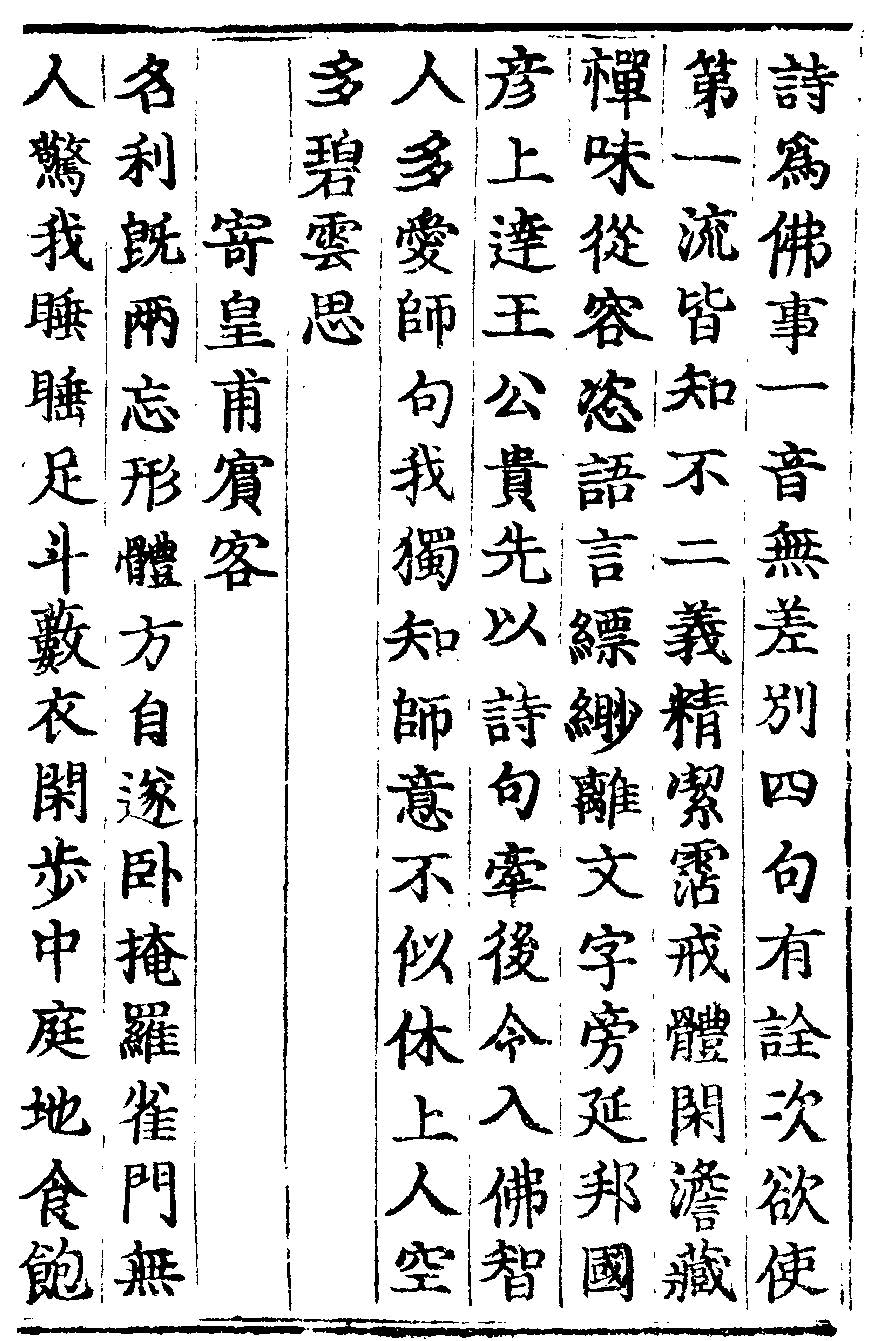 詩爲佛事一音無差別四句有詮次欲使
第一流皆知不二義精潔霑戒體閑澹藏
禪味從容恣語言縹緲離文字旁延邦國
彦上達王公貴先以詩句牽後令入佛智
人多愛師句我獨知師意不似休上人空
多碧雲思
寄皇甫賓客
名利旣兩忘形體方自遂卧掩羅雀門無
人驚我睡睡足斗藪衣閑步中庭地食飽